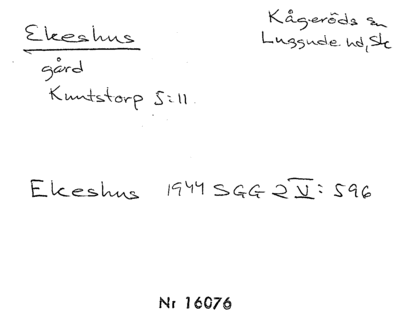 Ekeshus
Kågeröds sn
Luggude hd, Sk
gård
Knutstorp 5:11
Ekeshus 1944 SGG 2 V: 596
Nr 16076